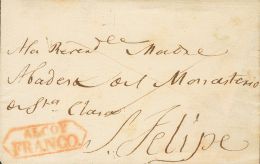 A la Reverend^ee Madre
Abadesa del Monasterio
de Sta Clara
S. Felipe
ALCOY
FRANCO.